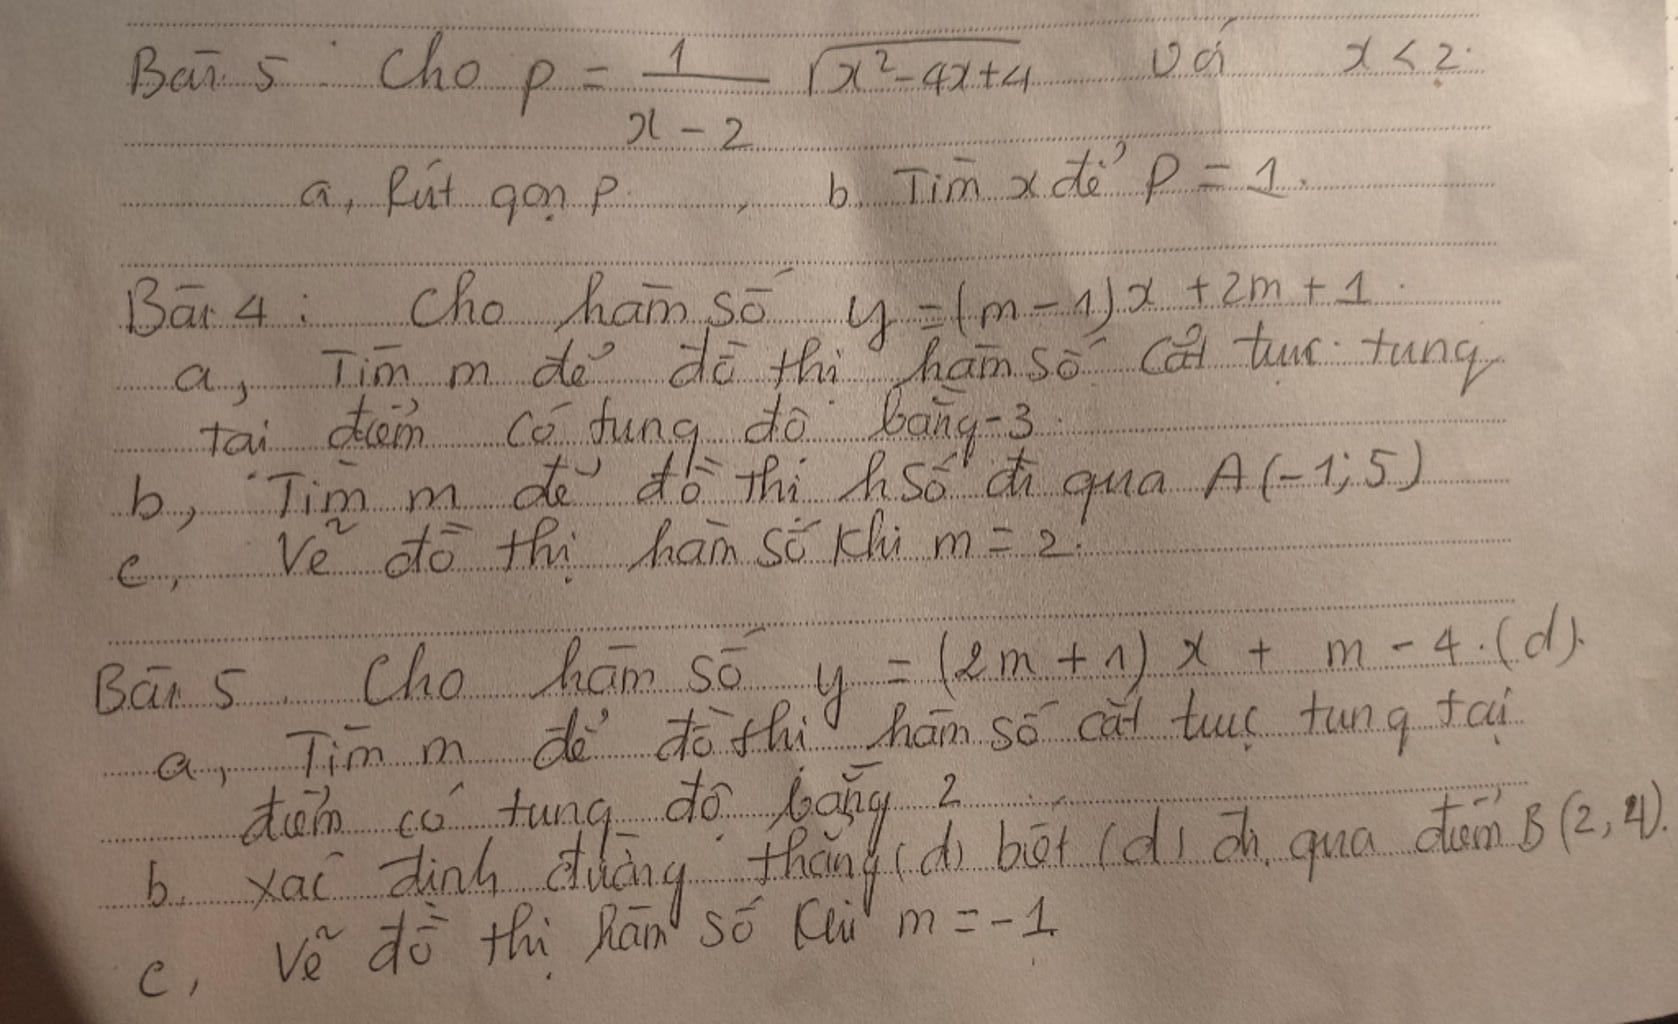 Bài 5 : Cho P = 1/(x - 2) √(x² - 4x + 4) với x < 2.
a, Rút gọn P. , b. Tìm x để P = 1.
Bài 4 : Cho hàm số y = (m - 1)x + 2m + 1.
a, Tìm m để đồ thị hàm số cắt trục tung
tại điểm có tung độ bằng -3.
b, Tìm m để đồ thị h số đi qua A (-1; 5)
c, Vẽ đồ thị hàm số khi m = 2.
Bài 5 Cho hàm số y = (2m + 1) x + m - 4. (d).
a, Tìm m để đồ thị hàm số cắt trục tung tại
điểm có tung độ bằng 2
b. xác định đường thẳng (d) biết (d) đi qua điểm B (2, 4).
c, Vẽ đồ thị hàm số khi m = -1